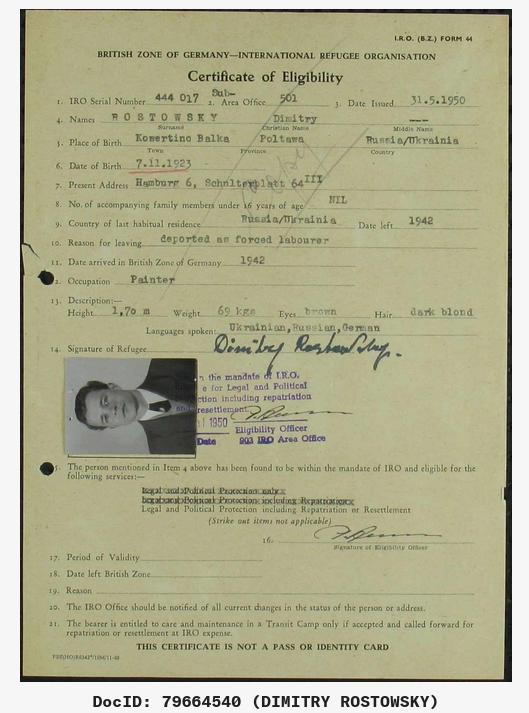 I.R.O. (B.Z.) FORM 44
BRITISH ZONE OF GERMANY—INTERNATIONAL REFUGEE ORGANISATION
Certificate of Eligibility
1. IRO Serial Number 444 017 2. Sub- Area Office 501 3. Date Issued 31.5.1950
4. Names ROSTOWSKY Dimitry
Surname Christian Name Middle Name
5. Place of Birth Kowertino Balka Poltawa Russia/Ukrainia
Town Province Country
6. Date of Birth 7.11.1923
7. Present Address Hamburg 6, Schulterblatt 64 III
8. No. of accompanying family members under 16 years of age NIL
9. Country of last habitual residence Russia/Ukrainia Date left 1942
10. Reason for leaving deported as forced labourer
11. Date arrived in British Zone of Germany 1942
2. Occupation Painter
13. Description:—
Height 1,70 m Weight 69 kgs Eyes brown Hair dark blond
Languages spoken: Ukrainian, Russian, German
14. Signature of Refugee Dimitry Rostowsky.
n the mandate of I.R.O.
e for Legal and Political
ction including repatriation
resettlement.
1950
Eligibility Officer
Date 903 IRO Area Office
5. The person mentioned in Item 4 above has been found to be within the mandate of IRO and eligible for the
following services:—
Legal and Political Protection only
Legal and Political Protection including Repatriation
Legal and Political Protection including Repatriation or Resettlement
(Strike out items not applicable)
16.
Signature of Eligibility Officer
17. Period of Validity
18. Date left British Zone
19. Reason
20. The IRO Office should be notified of all current changes in the status of the person or address.
21. The bearer is entitled to care and maintenance in a Transit Camp only if accepted and called forward for
repatriation or resettlement at IRO expense.
THIS CERTIFICATE IS NOT A PASS OR IDENTITY CARD
DocID: 79664540 (DIMITRY ROSTOWSKY)